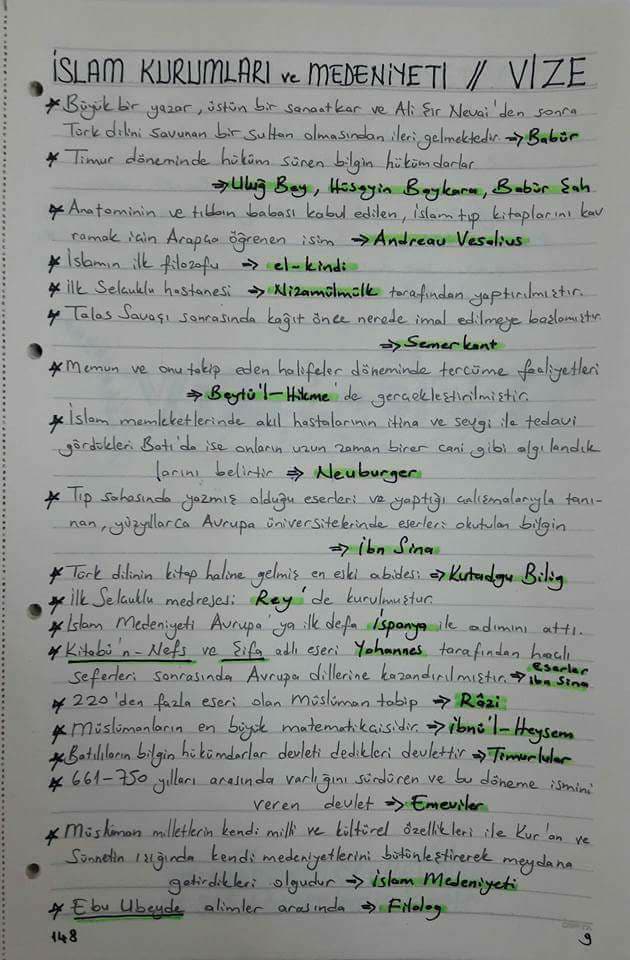 İSLAM KURUMLARI ve MEDENİYETİ // VİZE
* Büyük bir yazar, üstün bir sanaatkar ve Ali Şir Nevai'den sonra
Türk dilini savunan bir sultan olmasından ileri gelmektedir. ⇒ Babür
* Timur döneminde hüküm süren bilgin hükümdarlar
⇒ Uluğ Bey, Hüseyin Baykara, Babür Şah
* Anatominin ve tıbbın babası kabul edilen, İslam tıp kitaplarını kav
ramak için Arapça öğrenen isim ⇒ Andreau Vesalius
* İslamın ilk filozofu ⇒ el-kindi
* İlk Selçuklu hastanesi ⇒ Nizamülmülk tarafından yaptırılmıştır.
* Talas Savaşı sonrasında kağıt önce nerede imal edilmeye başlamıştır
⇒ Semerkant
* Memun ve onu takip eden halifeler döneminde tercüme faaliyetleri
⇒ Beytü'l-Hikme'de gerçekleştirilmiştir.
* İslam memleketlerinde akıl hastalarının itina ve sevgi ile tedavi
gördükleri Batı'da ise onların uzun zaman birer cani gibi algılandık
larını belirtir ⇒ Neuburger
* Tıp sahasında yazmış olduğu eserleri ve yaptığı çalışmalarıyla tanı-
nan, yüzyıllarca Avrupa üniversitelerinde eserleri okutulan bilgin
⇒ İbn Sina
* Türk dilinin kitap haline gelmiş en eski abidesi ⇒ Kutadgu Bilig
* İlk Selçuklu medresesi Rey'de kurulmuştur.
* İslam Medeniyeti Avrupa'ya ilk defa İspanya ile adımını attı.
* Kitabü'n-Nefs ve Şifa adlı eseri Yohannes tarafından haçlı
seferleri sonrasında Avrupa dillerine kazandırılmıştır. ⇒ Eserler
İbn Sina
* 220'den fazla eseri olan Müslüman tabip ⇒ Râzi
* Müslümanların en büyük matematikçisidir. ⇒ İbnü'l-Heysem
* Batılıların bilgin hükümdarlar devleti dedikleri devlettir ⇒ Timurlular
* 661-750 yılları arasında varlığını sürdüren ve bu döneme ismini
veren devlet ⇒ Emeviler
* Müslüman milletlerin kendi milli ve kültürel özellikleri ile Kur'an ve
Sünnetin ışığında kendi medeniyetlerini bütünleştirerek meydana
getirdikleri olgudur ⇒ İslam Medeniyeti
* Ebu Ubeyde alimler arasında ⇒ Filolog
148
9